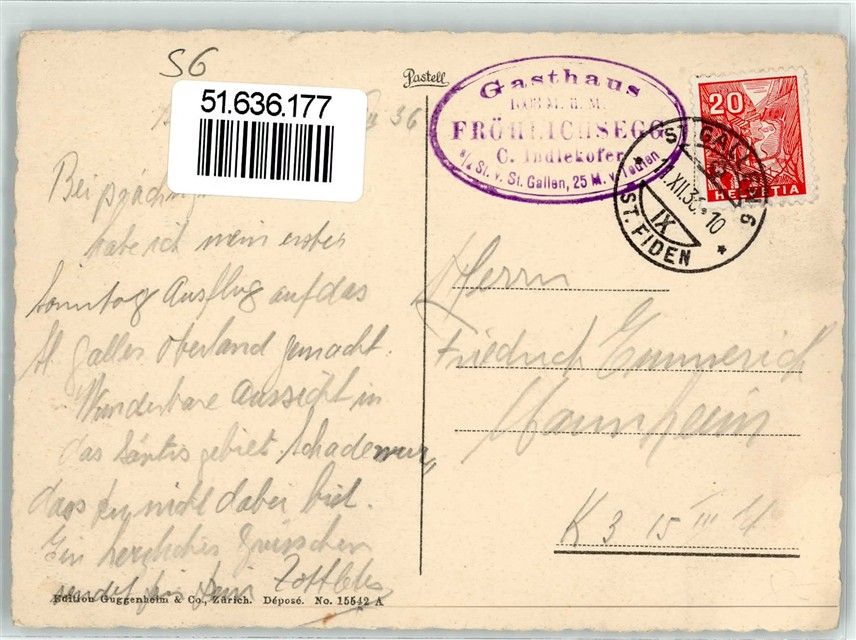 SG
51.636.177
36
Bei
habe ich mein erster
Sonntag Ausflug auf das
St Galler Oberland gemacht.
Wunderbare Aussicht in
das Säntisgebiet. Schade nur,
dass Du nicht dabei bist.
Ein herzliches Grüsschen
sendet Dein
Edition Guggenheim & Co., Zürich. Déposé. No. 15542 A
Pastell
Gasthaus
1003 M. ü. M.
FRÖHLICHSEGG
C. Indlekofer
St. v. St. Gallen, 25 M. v. Teufen
20
HELVETIA
ST. GALLEN 6
XII.36. 10
IX
ST. FIDEN
Herrn
Friedrich Emmerich
Mannheim
K 3 15 III